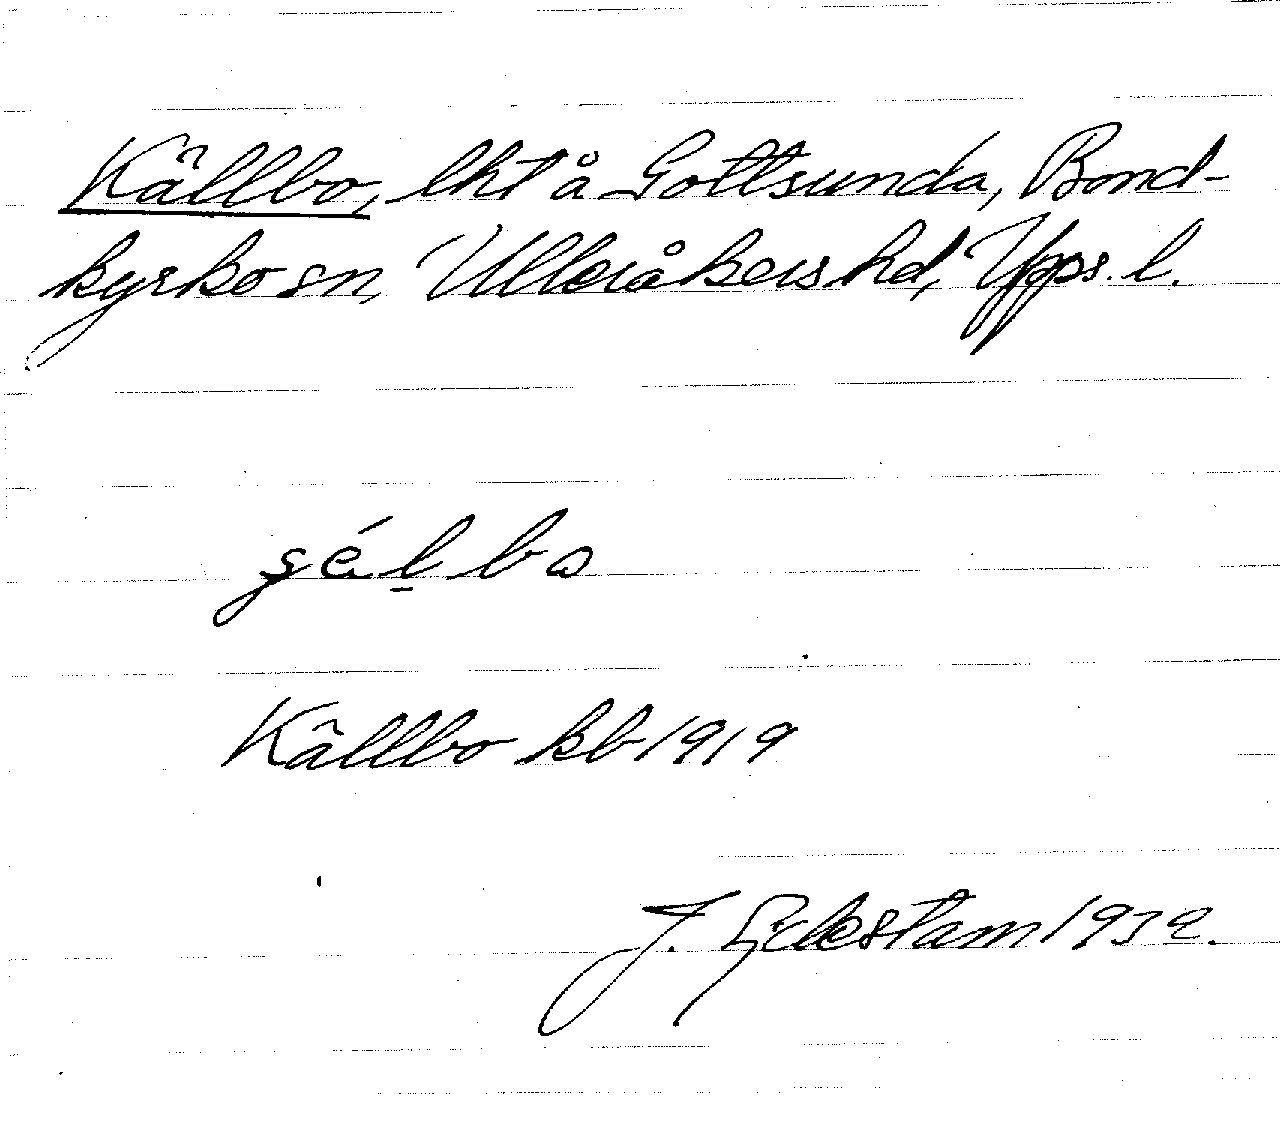 Källbo, lht å Gottsunda, Bond-
kyrko sn, Ulleråkers hd, Upps. l.
Källbo kb 1919
J. 1932.